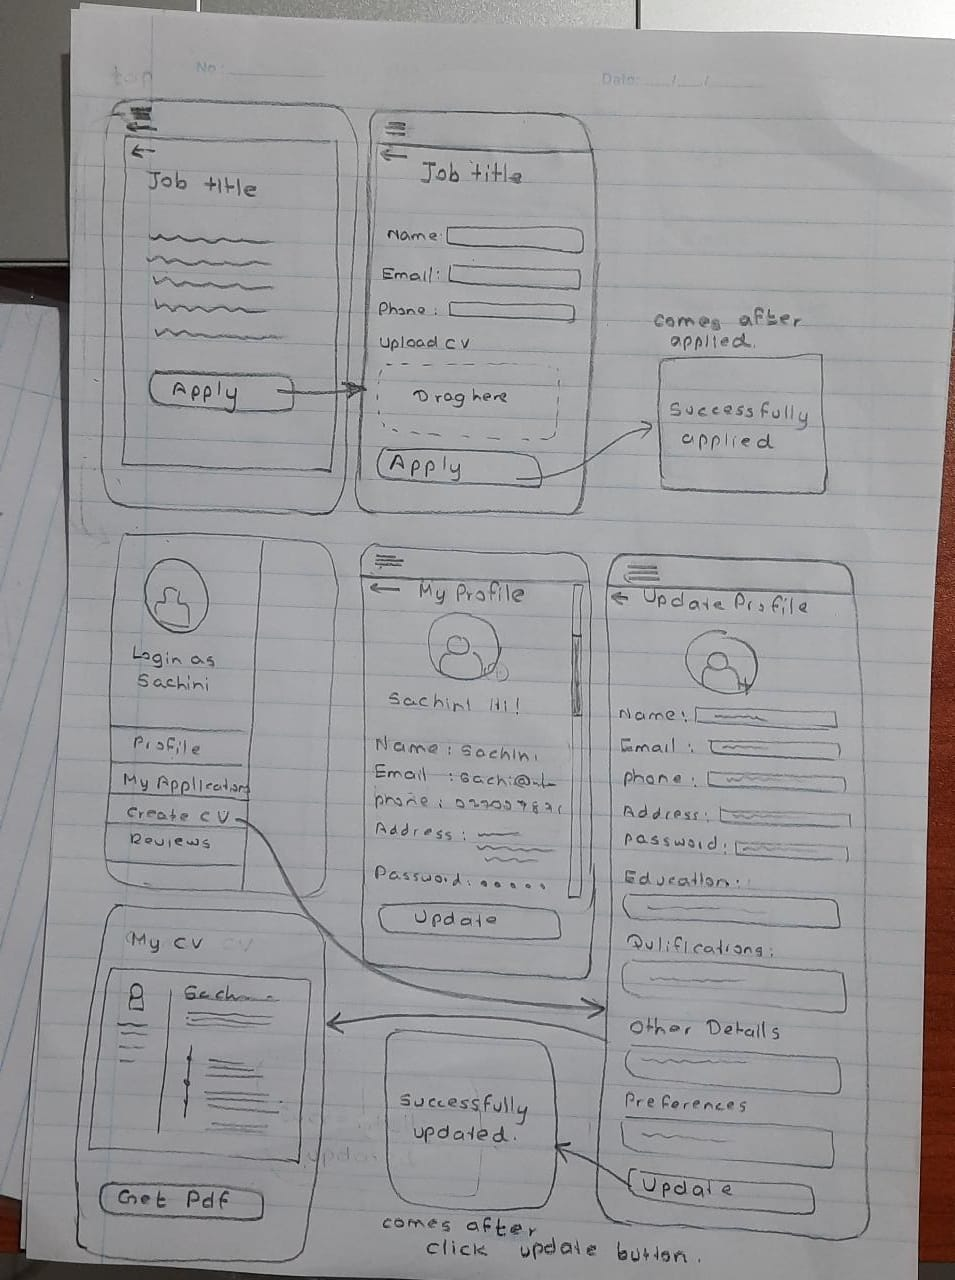 top
No:
Date: / /
Job title
Apply
Job title
Name:
Email:
Phone:
Upload CV
Drag here
Apply
comes after
applied.
Successfully
applied
Login as
Sachini
Profile
My Application
Create CV
Reviews
My Profile
Sachini Hi!
Name : Sachini
Email : Sachi@
Phone :
Address :
Password: .....
Update
Update Profile
Name:
Email :
Phone :
Address:
Password:
Education:
Qulifications:
Other Details
Preferences
Update
My CV
Get Pdf
Successfully
updated.
comes after
click update button.